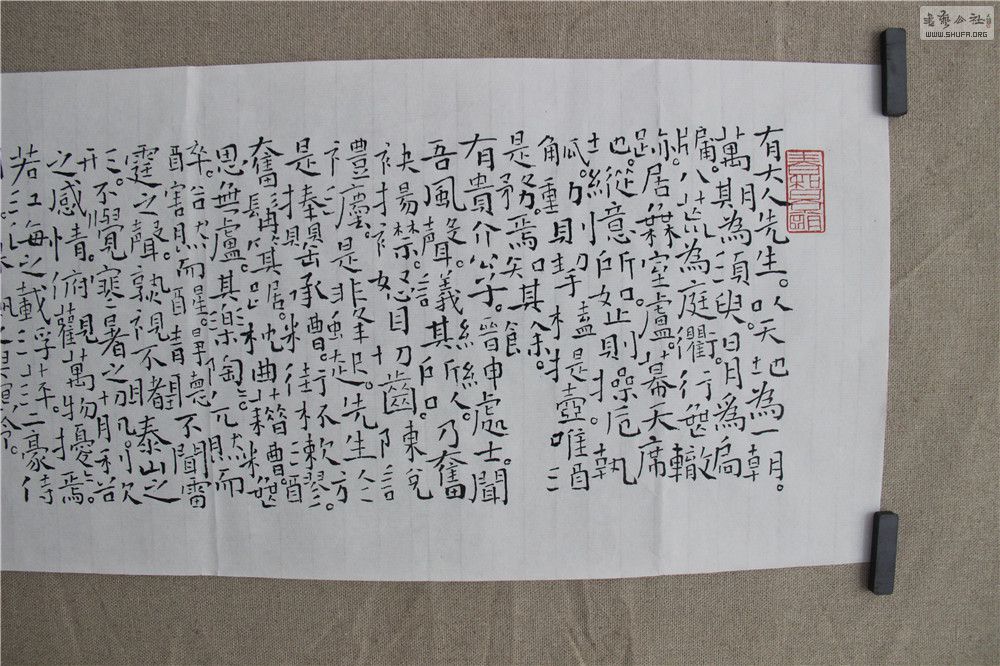 有大人先生。以天地為一朝。
萬期為須臾。日月為扃
牖。八荒為庭衢。行無轍
跡。居無室廬。幕天席
地。縱意所如。止則操卮執
觚。動則挈榼提壺。唯酒
是務。焉知其餘。
有貴介公子。搢紳處士。聞
吾風聲。議其所以。乃奮
袂揚襟。怒目切齒。陳說
禮法。是非鋒起。先生於
是方捧罌承槽。銜杯漱醪。
奮髯箕踞。枕麴藉糟。無
思無慮。其樂陶陶。兀然而
醉。豁然而醒。靜聽不聞雷
霆之聲。熟視不睹泰山之
形。不覺寒暑之切肌。利欲
之感情。俯觀萬物。擾擾焉
若江海之載浮萍。二豪侍
書藝公社
WWW.SHUFA.ORG